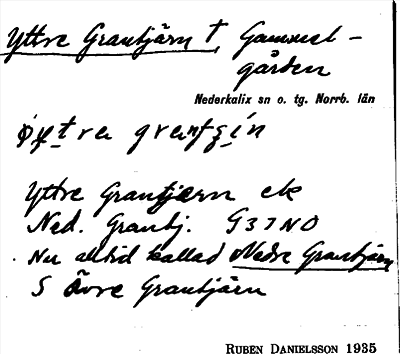 Yttre Grantjärn † Gammel-
gården
Nederkalix sn o. tg. Norrb. län
Yttre Grantjärn ek
Ned. Grantj. G37NO
Nu alltid kallad Nedre Grantjärn
S Övre Grantjärn
RUBEN DANIELSSON 1935